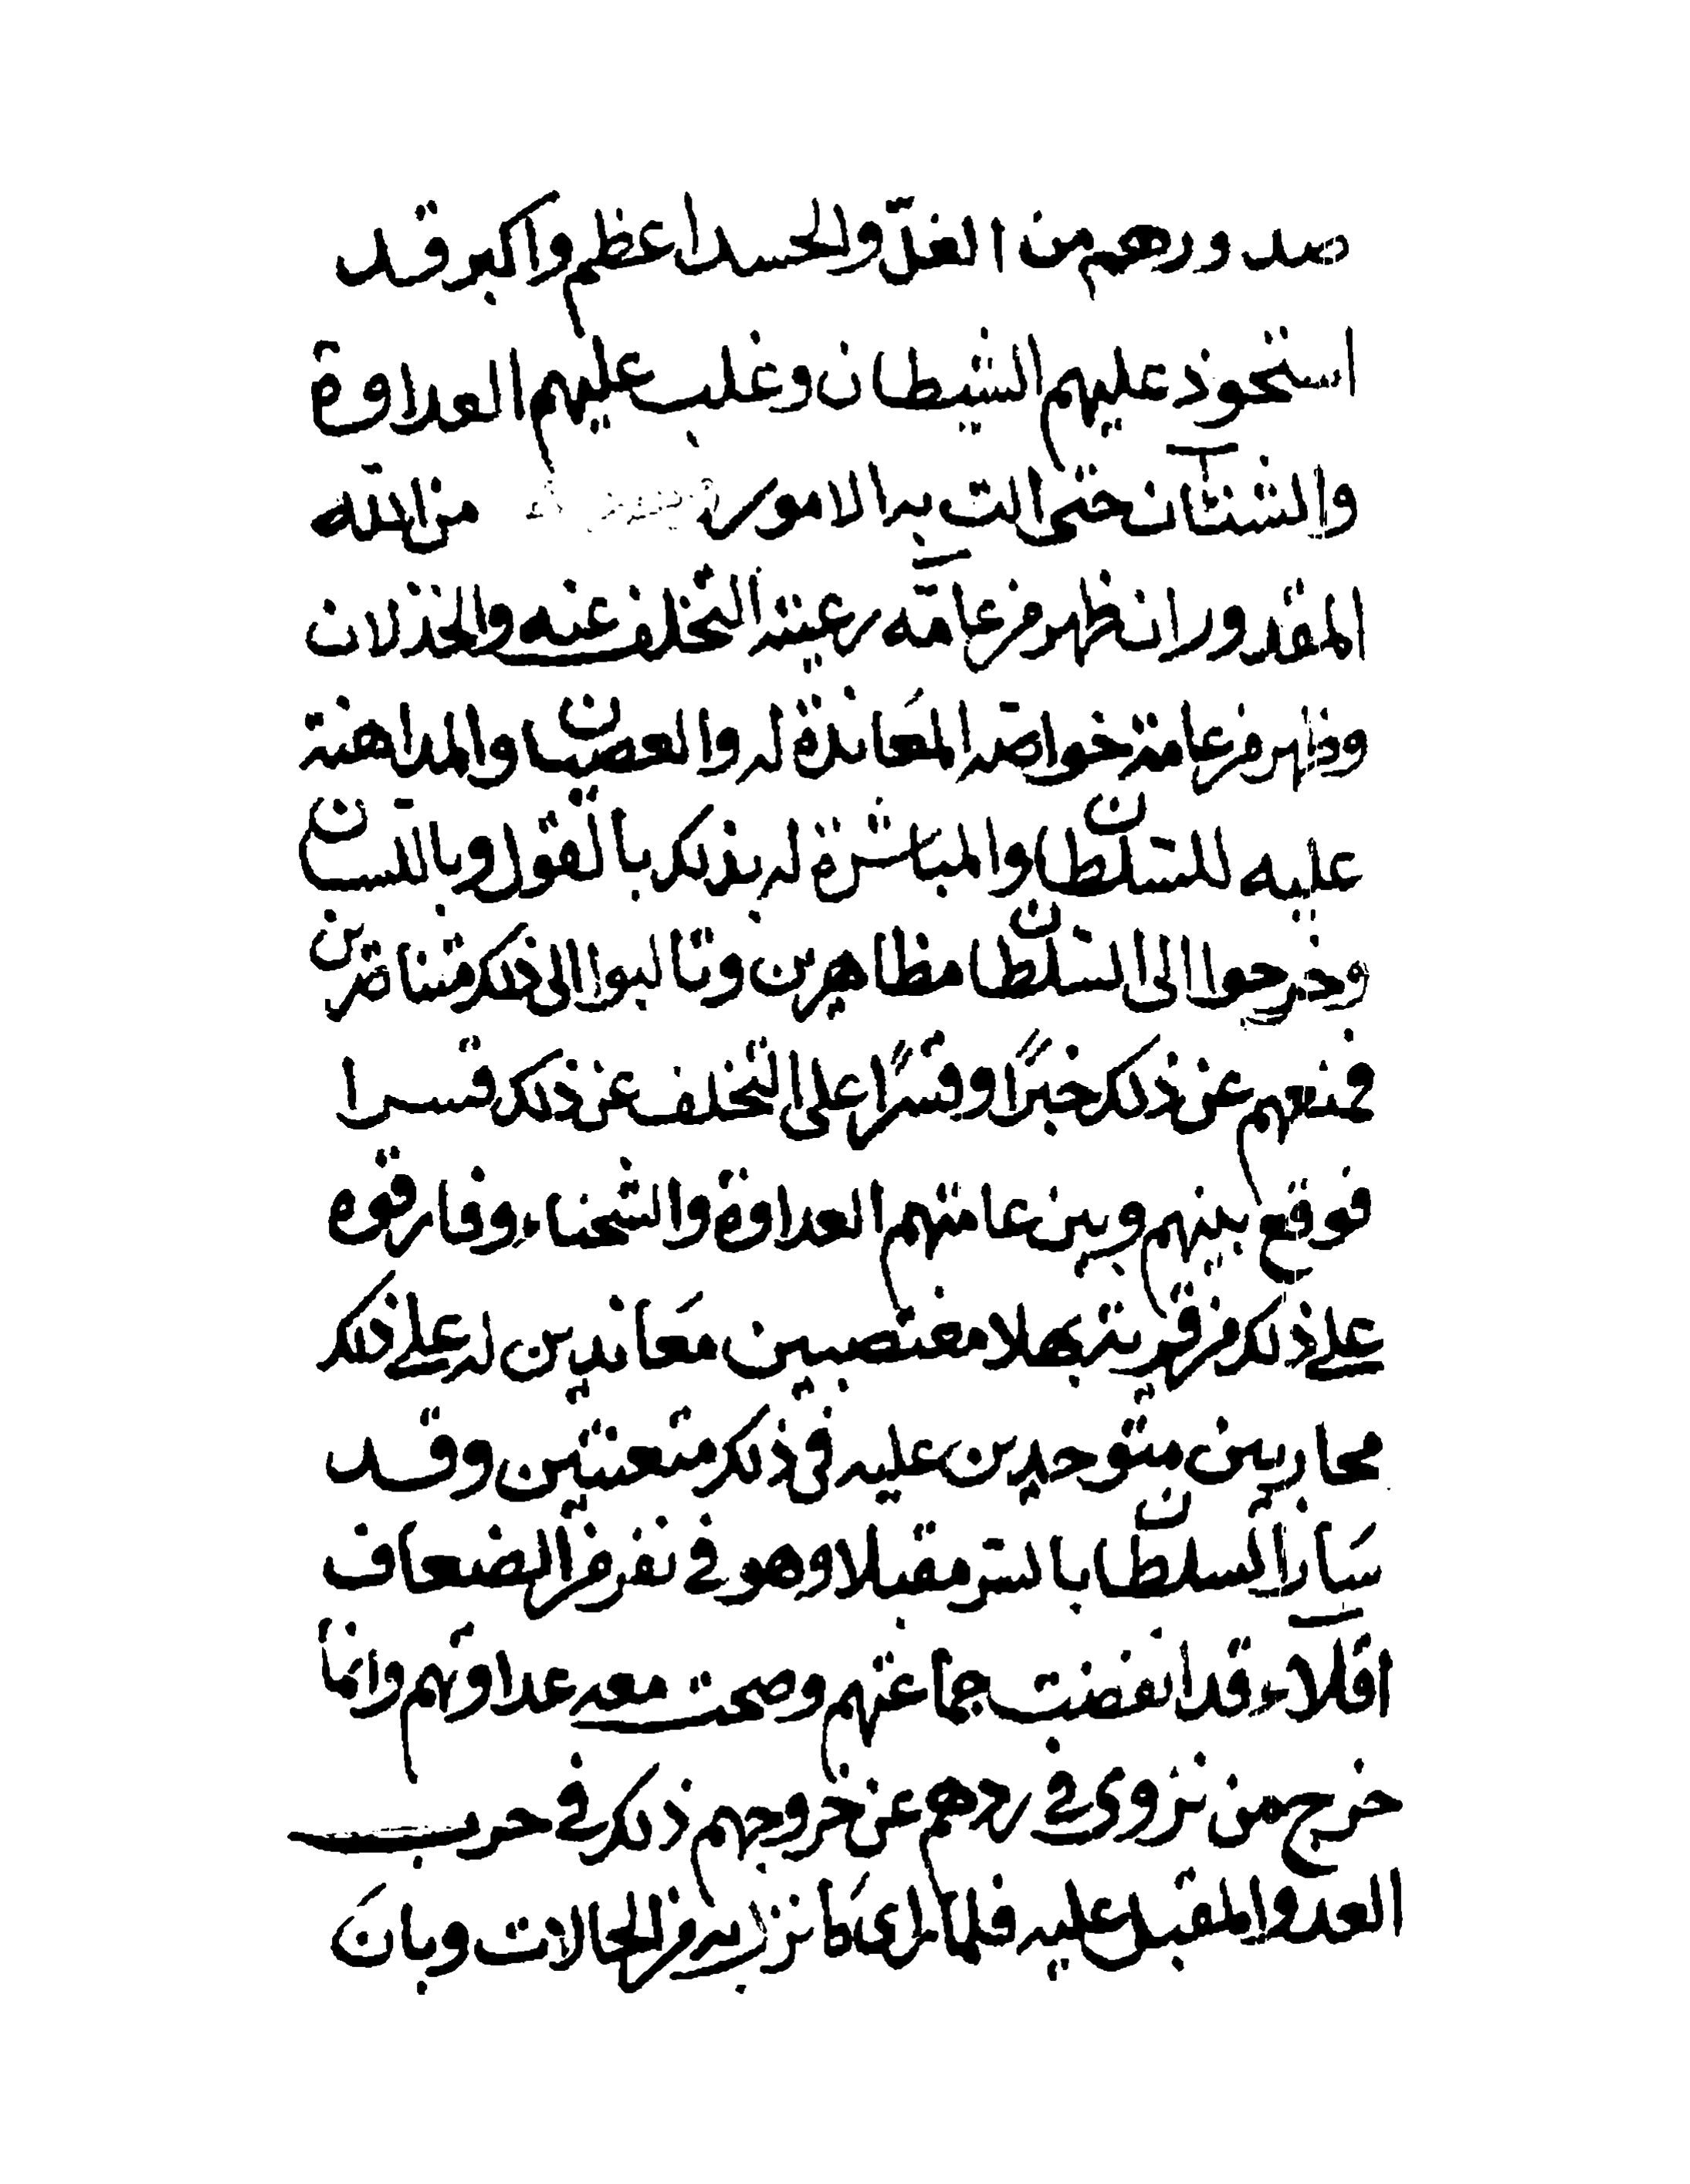 صدورهم من الغلّ والحسد اعظم واكبر قد
استحوذ عليهم الشيطان وغلب عليهم العداوة
والشنئان حتى الت به الامور من الله
المقدور ان ظهر من عامّة رعيته التخلف عنه والخذلان
وظهر من عامة خواصه المعاندة له والعصيان والمداهنة
عليه للسّلطان والمباشرة له بذلك بالقول وباللّسان
وخرجوا الى السّلطان مظاهرين وتالبوا الى ذلك متناصرين
فمنعهم عن ذلك خبرًا وقسرًا على التخلف عن ذلك قسرا
فوقع بينهم وبين عامتهم العداوة والشحناء وفارقوه
على ذلك من قرية بهلا مغتصبين معاندين له على ذلك
محاربين متوحدين عليه في ذلك متعنتين وقد
سَار السلطان بالسّر مقبلا وهو في نفر من الضعاف
اقلّاء قد انفضت جماعتهم وصحت معه عداوتهم وانما
خرج من نزوى في ردهم عن خروجهم ذلك في حرب
العدو المقبل عليه فلما راى ما نزل به من الحالات وبانَ